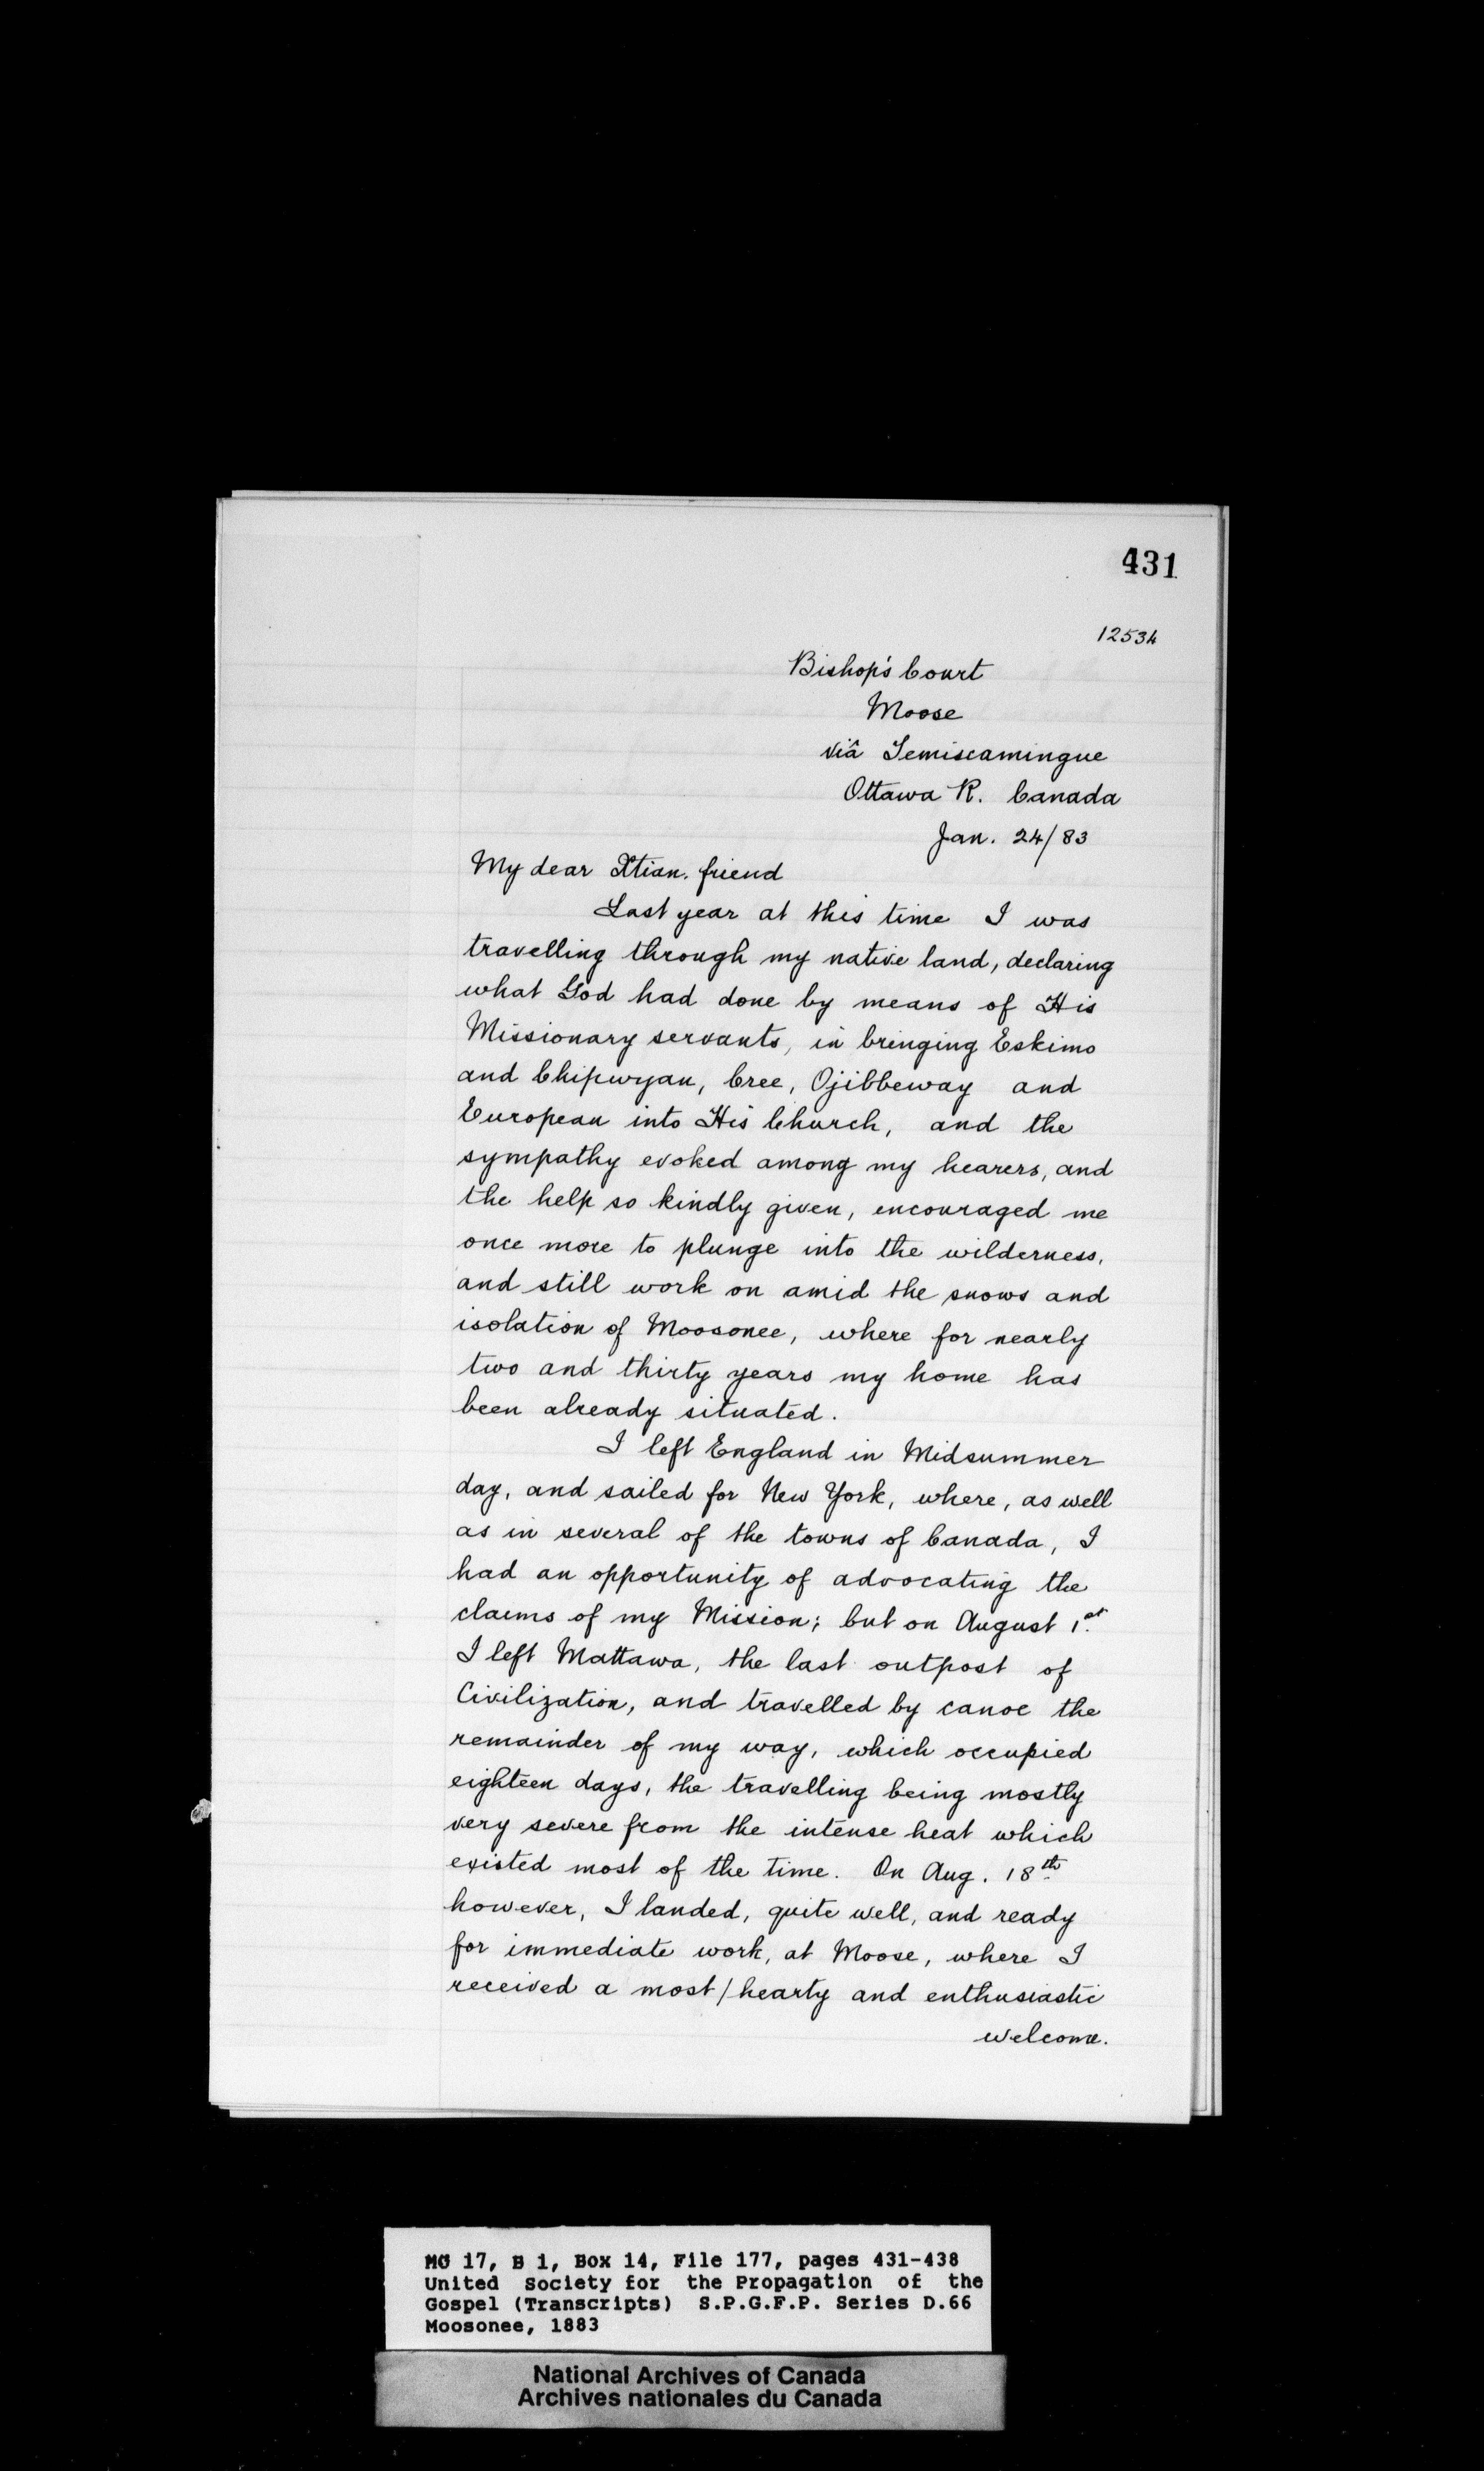 431
12534
Bishop's Court
Moose
viâ Temiscamingue
Ottawa R. Canada
Jan. 24/83
My dear Xtian. friend
Last year at this time I was
travelling through my native land, declaring
what God had done by means of His
Missionary servants, in bringing Eskimo
and Chipwyan, Cree, Ojibbeway and
European into His Church, and the
sympathy evoked among my hearers, and
the help so kindly given, encouraged me
once more to plunge into the wilderness,
and still work on amid the snows and
isolation of Moosonee, where for nearly
two and thirty years my home has
been already situated.
I left England in Midsummer
day, and sailed for New York, where, as well
as in several of the towns of Canada, I
had an opportunity of advocating the
claims of my Mission; but on August 1st.
I left Mattawa, the last outpost of
Civilization, and travelled by canoe the
remainder of my way, which occupied
eighteen days, the travelling being mostly
very severe from the intense heat which
existed most of the time. On Aug. 18th
however, I landed, quite well, and ready
for immediate work, at Moose, where I
received a most/hearty and enthusiastic
welcome.
MG 17, B 1, Box 14, File 177, pages 431-438
United Society for the Propagation of the
Gospel (Transcripts) S.P.G.F.P. Series D.66
Moosonee, 1883
National Archives of Canada
Archives nationales du Canada